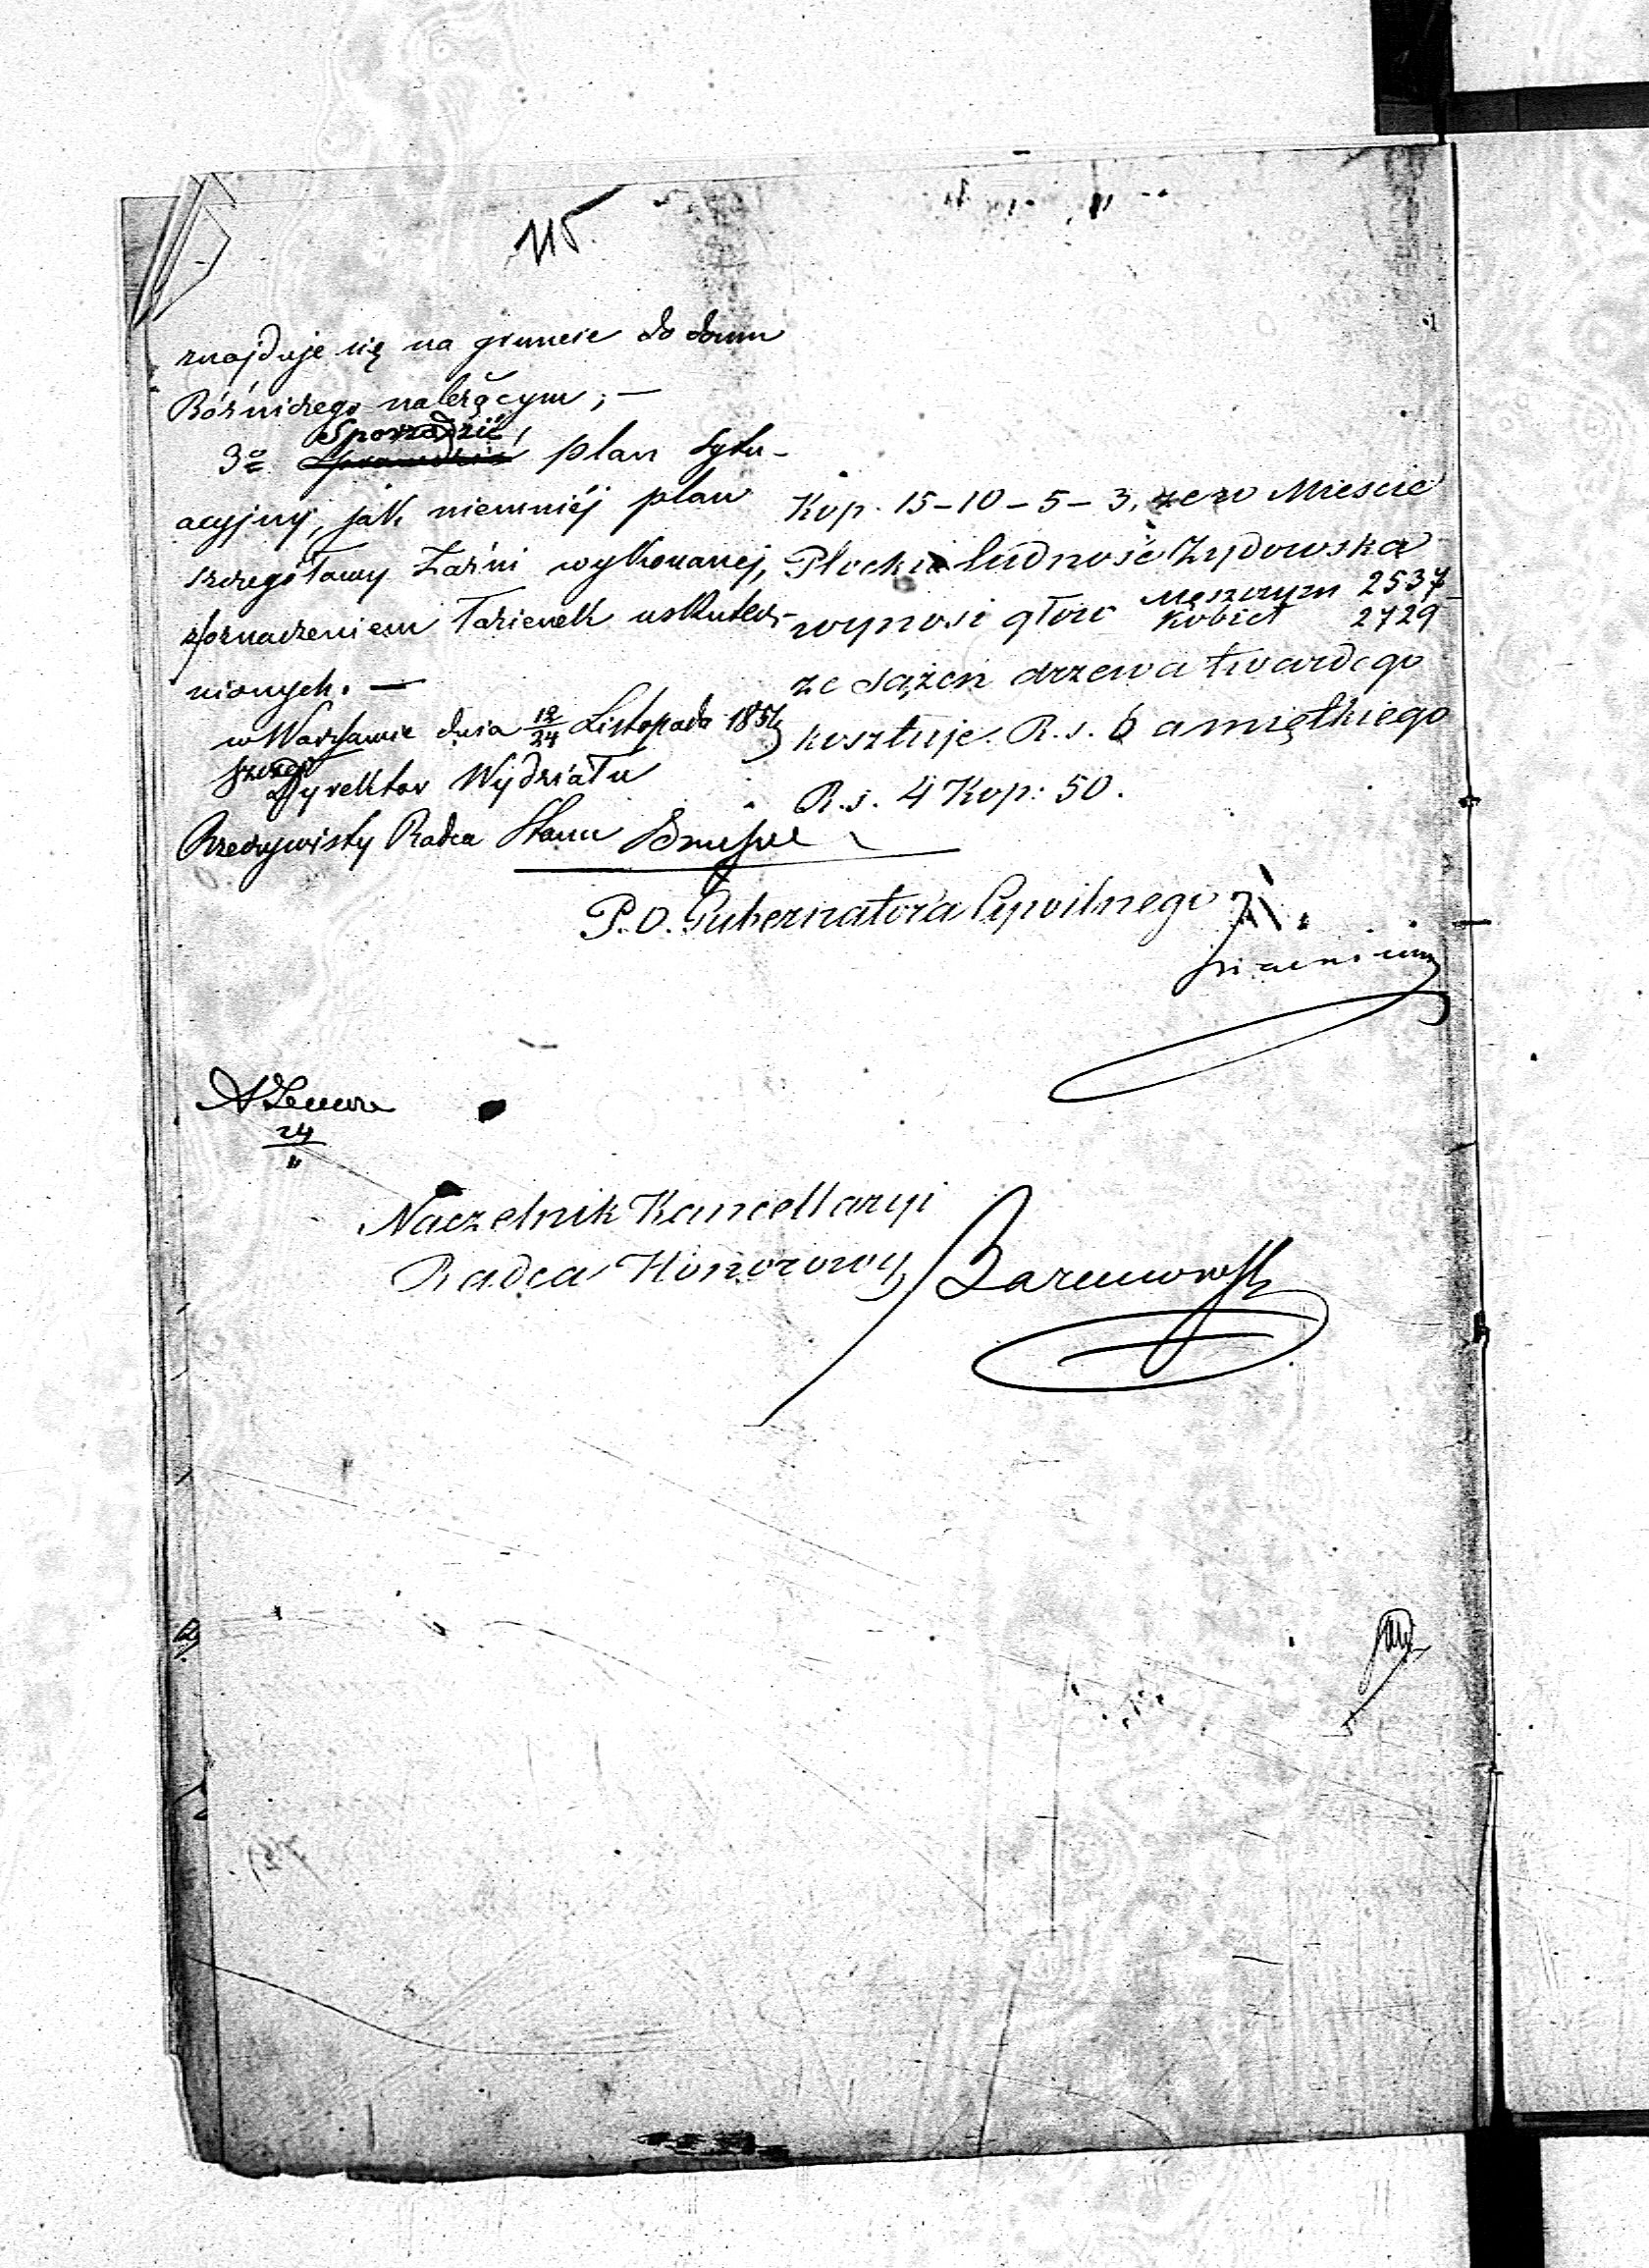 115.
znajduje się na gruncie do domu
Bóżniczego należącym; —
Sporządzić
3o plan sytu-
acyjny, jak niemniéj plan
szczegółowy Łaźni wykonanéj,
z oznaczeniem Łazienek uskutecz-
nionych. —
w Warszawie dnia 12/24 Listopada 185
Dyrektor Wydziału
Rzeczywisty Radca Stanu
Kop. 15-10-5-3, że w Mieście
Płocku ludność Żydowska
wynosi głów męszczyzn 2537
kobiet 2729
że sążeń drzewa twardego
kosztuje R.s. 6 a miętkiego
R.s. 4 Kop: 50.
P.O. Gubernatora Cywilnego
24
11
Naczelnik Kancellaryi
Radca Honorowy